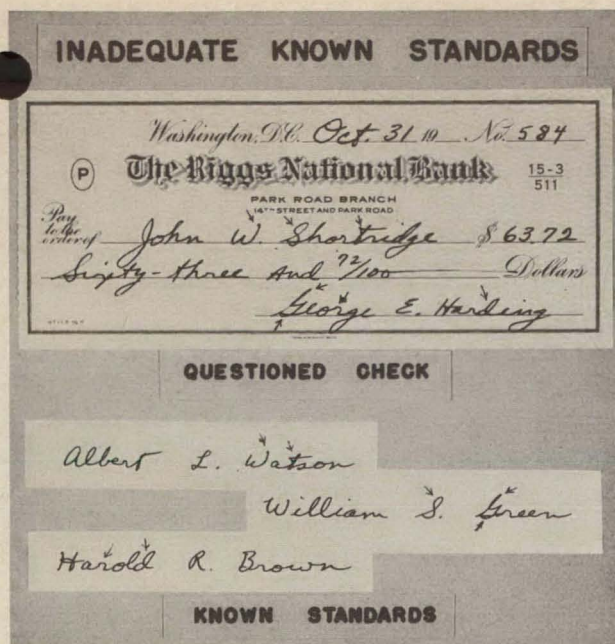 INADEQUATE KNOWN STANDARDS
Washington, D.C. Oct. 31 19 No. 584
P The Riggs National Bank 15-3
511
PARK ROAD BRANCH
14TH STREET AND PARK ROAD
Pay
to the
order of John W. Shortridge $ 63.72
Sixty-three and 72/100 Dollars
George E. Harding
QUESTIONED CHECK
Albert L. Watson
William S. Green
Harold R. Brown
KNOWN STANDARDS